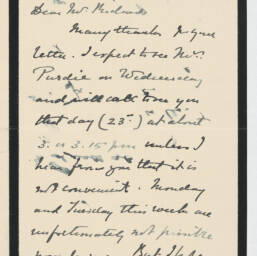 Dear Mr. Richards
Many thanks for your
letter. I expect to see Mr.
Purdie on Wednesday
and will call to see you
that day (23rd) at about
3 or 3.15 pm unless I
hear from you that it is
not convenient. Monday
and Tuesday this week are
unfortunately not possible
But I hope